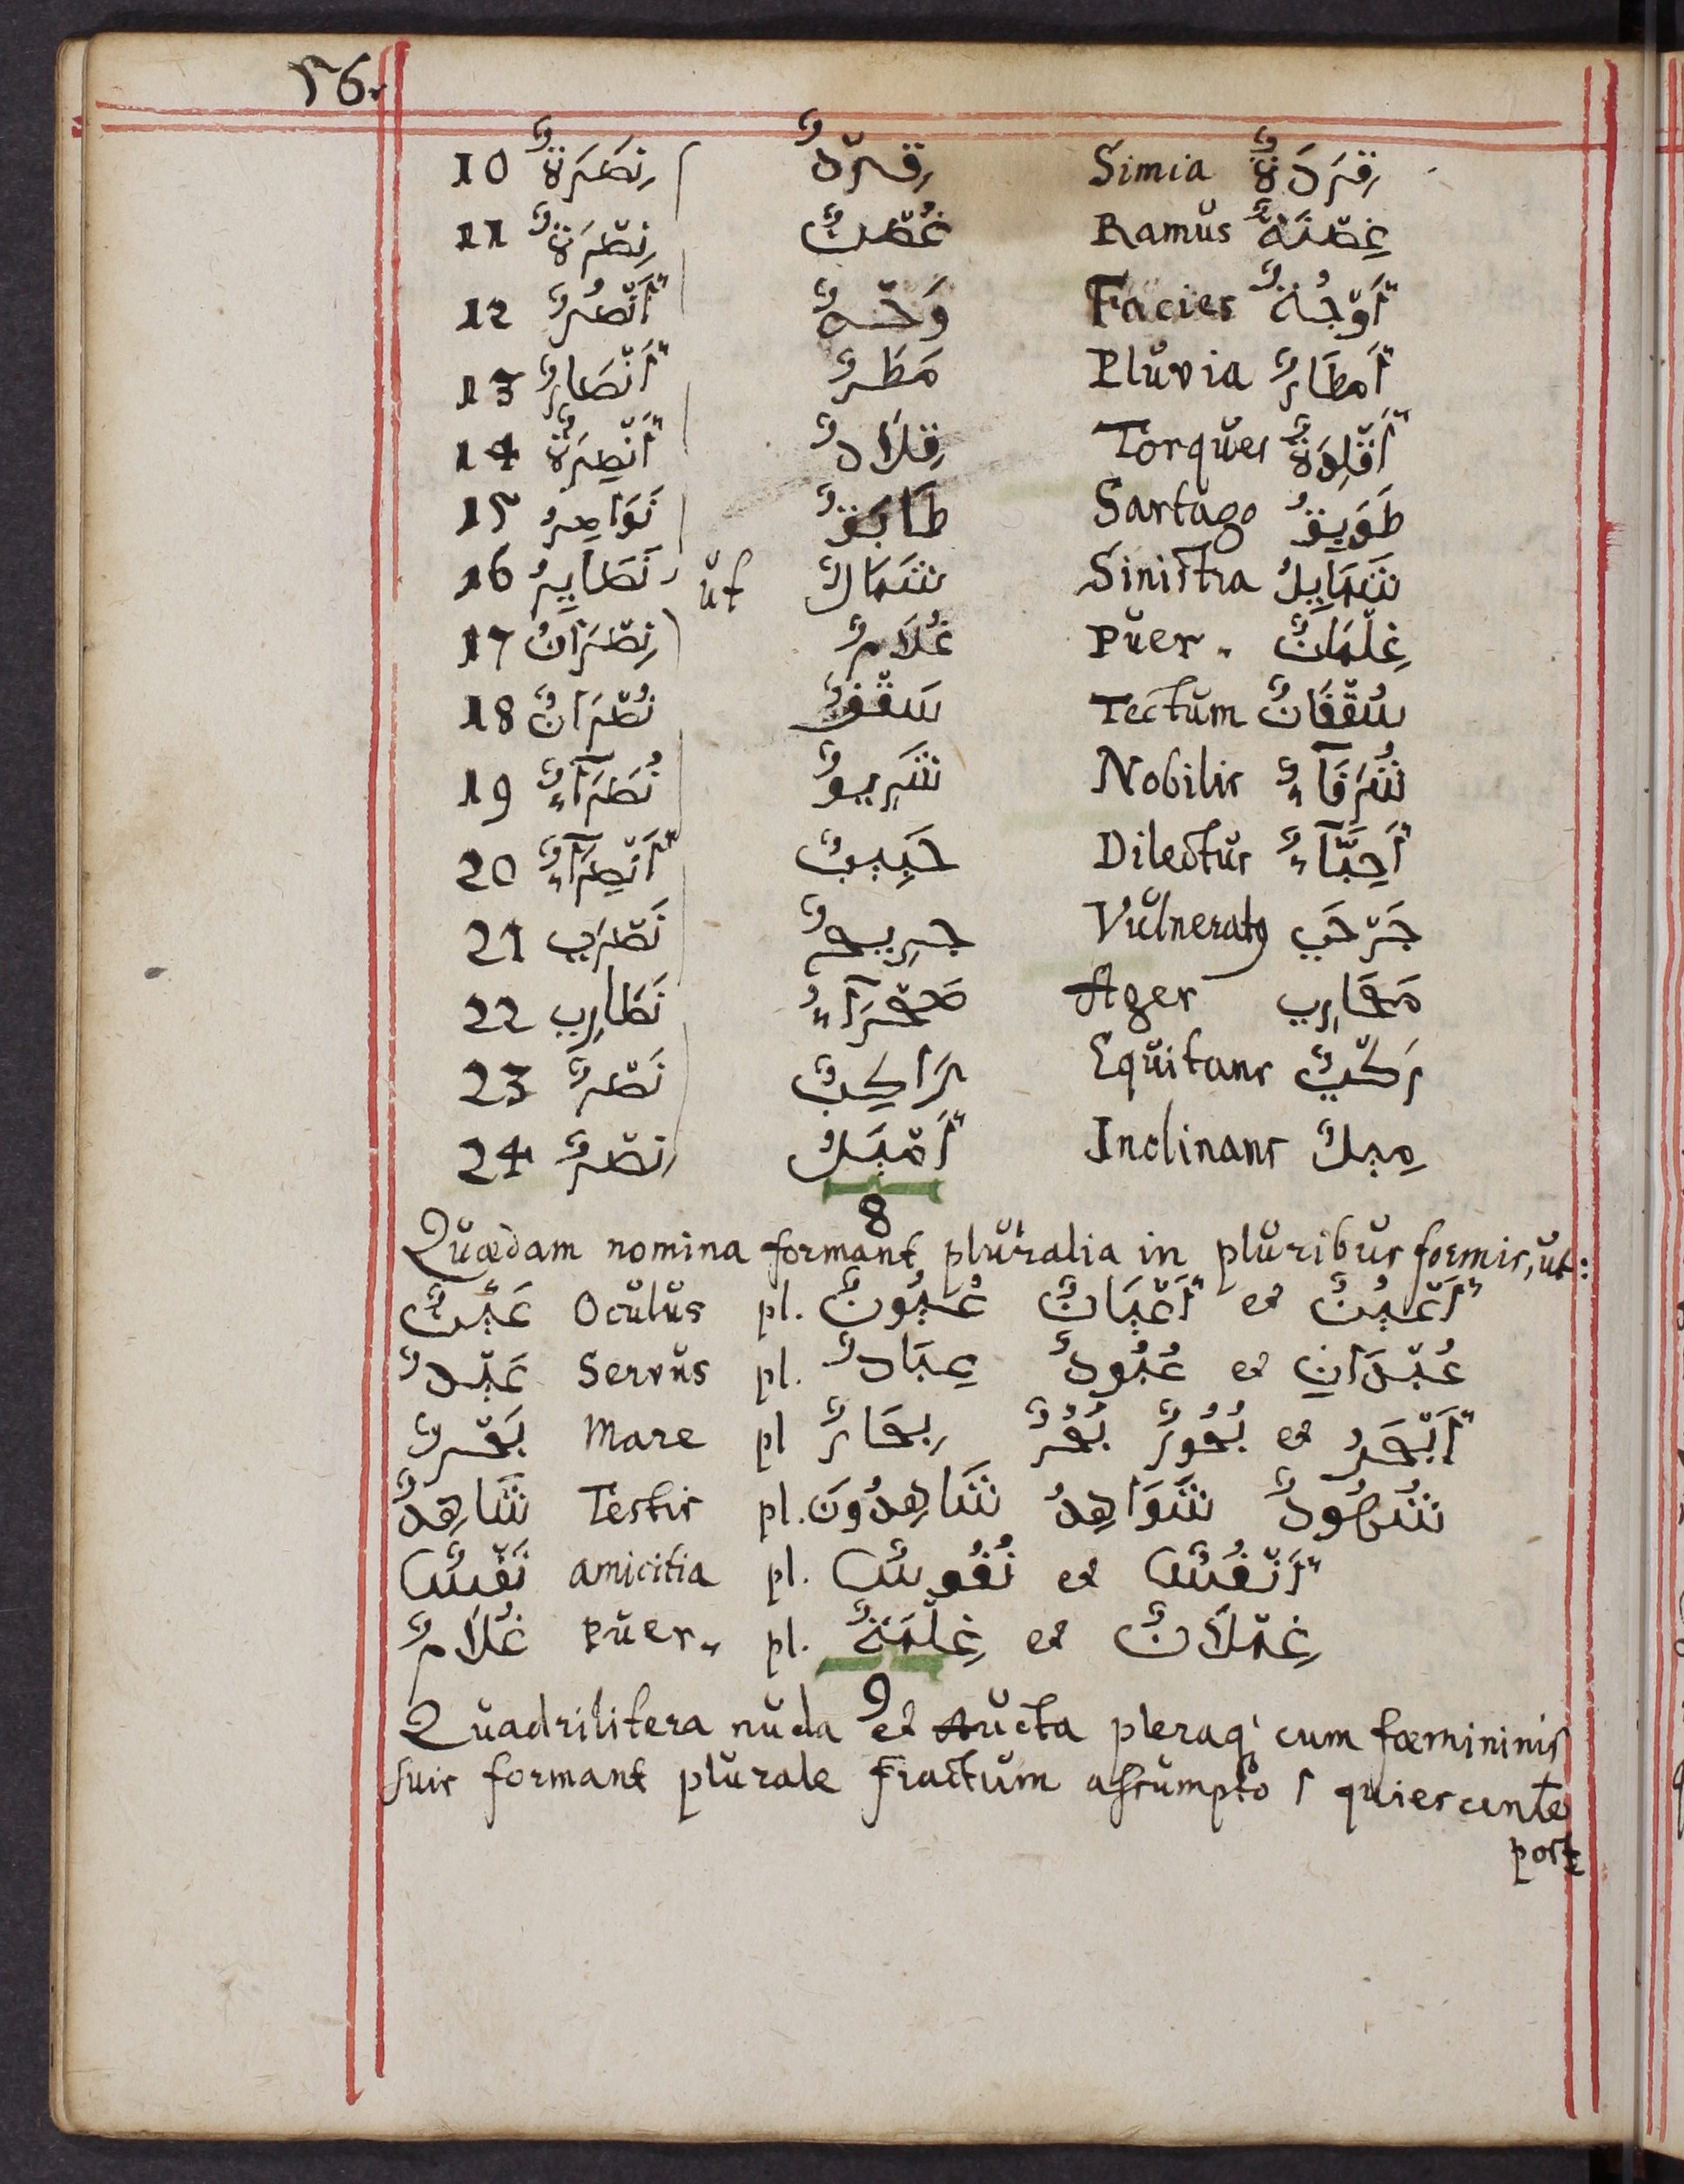 56.
10 نِصَرَةٌ قِرْدٌ Simia قِرَدَةٌ
11 نِصْرَةٌ غُصْنٌ Ramus غِصْنَةٌ
12 أَنْصُرٌ وَجْهٌ Facies أَوْجُهٌ
13 أَنْصَارٌ مَطَرٌ Pluvia أَمطَارٌ
14 أَنْصِرَةٌ قِلَادٌ Torques أَقْلِدَةٌ
15 نَوَاصِرُ طَابَقٌ Sartago طَوَبِقُ
16 نَصَايِرُ ut شَمَالٌ Sinistra شَمَايِلُ
17 نِصْرَانٌ غُلَامٌ Puer. غِلْمَانٌ
18 نُصْرَانٌ سَقْفٌ Tectum سُقْفَانٌ
19 نُصَرَآءٌ شَرِيفٌ Nobilis شُرَفَآءٌ
20 أَنْصِرَآءٌ حَبِيبٌ Dilectus أَحِبَّآءٌ
21 نَصْرَى جرِيحٌ Vulneratꝰ جَرْحَى
22 نَصَارِى صَحْرَآءٌ Ager صَحَارِى
23 نَصْرٌ رَاكِبٌ Equitans رَكْبٌ
24 نِصْرٌ أَمْيَلُ Inclinans مِيلٌ
8
Quædam nomina formant pluralia in pluribus formis, ut:
عَيْنٌ Oculus pl. عُيُونٌ أَعْيَانٌ et أَعْيُنٌ
عَبْدٌ Servus pl. عِبَادٌ عُبُودٌ et عُبْدَانِ
بَحْرٌ Mare pl بِحَارٌ بُحُرٌ بُحُورٌ et أَبْحَرُ
شَاهِدٌ Testis pl. شَاهِدُونَ شَوَاهِدُ شُهُودٌ
نَفْسٌ amicitia pl. نُفُوسٌ et أَنْفُسٌ
غُلَامٌ Puer. pl. غِلْمَةٌ et غِمْلَانٌ
9
Quadrilitera nuda et Aucta pleraq' cum fœmininis
suis formant plurale fractum assumpto ا quiescente
post